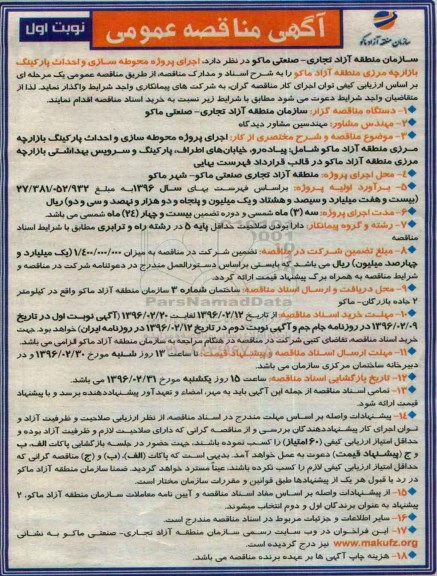 نوبت اول
آگهی مناقصه عمومی
سازمان منطقه آزاد ماکو
سازمان منطقه آزاد تجاری- صنعتی ماکو در نظر دارد، اجرای پروژه محوطه سازی و احداث پارکینگ
بازارچه مرزی منطقه آزاد ماکو را به شرح اسناد و مدارک مناقصه، از طریق مناقصه عمومی یک مرحله ای
بر اساس ارزیابی کیفی توان اجرای کار مناقصه گران، به شرکت های پیمانکاری واجد شرایط واگذار نماید. لذا از
متقاضیان واجد شرایط دعوت می شود مطابق با شرایط زیر نسبت به خرید اسناد مناقصه اقدام نمایند.
۱- دستگاه مناقصه گزار: سازمان منطقه آزاد تجاری- صنعتی ماکو
۲- مهندس مشاور: مهندسین مشاور دیدگاه
۳- موضوع مناقصه و شرح مختصری از کار: اجرای پروژه محوطه سازی و احداث پارکینگ بازارچه
مرزی منطقه آزاد ماکو شامل: پیاده‌رو، خیابان‌های اطراف، پارکینگ و سرویس بهداشتی بازارچه
مرزی منطقه آزاد ماکو در قالب قرارداد فهرست بهایی
۴- محل اجرای پروژه: منطقه آزاد تجاری صنعتی ماکو- شهر ماکو
۵- برآورد اولیه پروژه: براساس فهرست بهای سال ۱۳۹۶به مبلغ ۲۷/۳۸۱/۰۵۲/۹۳۲
(بیست و هفت میلیارد و سیصد و هشتاد و یک میلیون و پنجاه و دو هزار و نهصد و سی و دو) ریال
۶- مدت اجرای پروژه: سه (۳) ماه شمسی و دوره تضمین بیست و چهار (۲۴) ماه شمسی می باشد.
۷- رشته و گروه پیمانکار: دارا بودن صلاحیت حداقل پایه ۵ در رشته راه و ترابری مطابق با شرایط اسناد
مناقصه
۸- مبلغ تضمین شرکت در مناقصه: تضمین شرکت در مناقصه به میزان ۱/۴۰۰/۰۰۰/۰۰۰ (یک میلیارد و
چهارصد میلیون) ریال می باشد که بایستی براساس دستورالعمل مندرج در دعوتنامه شرکت در مناقصه و
شرایط مناقصه به همراه برگ پیشنهاد قیمت ارائه گردد.
۹- محل دریافت و ارسال اسناد مناقصه: ساختمان شماره ۳ سازمان منطقه آزاد ماکو واقع در کیلومتر
۲ جاده بازرگان- ماکو
۱۰- مهلت خرید اسناد مناقصه: از تاریخ ۱۳۹۶/۰۲/۱۲ لغایت ۱۳۹۶/۰۲/۲۰ (آگهی نوبت اول در تاریخ
۱۳۹۶/۰۲/۰۹ در روزنامه جام جم و آگهی نوبت دوم در تاریخ ۱۳۹۶/۰۲/۱۲ در روزنامه ایران) خواهد بود. جهت
خرید اسناد مناقصه، تقاضای کتبی شرکت در مناقصه در هنگام مراجعه به سازمان منطقه آزاد ماکو الزامی می باشد.
۱۱- مهلت ارسال اسناد مناقصه و پیشنهاد قیمت: تا ساعت ۱۳ روز شنبه مورخ ۱۳۹۶/۰۲/۳۰ و در
دبیرخانه ساختمان مرکزی سازمان می باشد.
۱۲- تاریخ بازگشایی اسناد مناقصه: ساعت ۱۵ روز یکشنبه مورخ ۱۳۹۶/۰۲/۳۱ می باشد.
۱۳- تمامی اسناد مناقصه از جمله این آگهی باید به مهر، امضاء و تعهد آور پیشنهاددهنده برسد و با پیشنهاد
قیمت ارائه شود
۱۴- پیشنهادات واصله بر اساس مهلت مندرج در اسناد مناقصه، از نظر ارزیابی صلاحیت و ظرفیت آزاد و
توان اجرای کار پیشنهاددهندگان بررسی و از مناقصه گرانی که دارای صلاحیت لازم و ظرفیت آزاد بوده و
حداقل امتیاز ارزیابی کیفی (۶۰ امتیاز) را کسب نموده باشند، جهت حضور در جلسه بازگشایی پاکات الف، ب
و ج (پیشنهاد قیمت) دعوت به عمل خواهد آمد. بدیهی است که پاکات (الف)، (ب) و (ج) مناقصه گرانی که
حداقل امتیاز ارزیابی کیفی لازم را کسب نکرده باشند، عیناً مسترد خواهد گردید. ضمنا سازمان منطقه آزاد ماکو
در رد یا قبول هر یک از پیشنهادها طبق قوانین و مقررات سازمان مختار است.
۱۵- از پیشنهادات واصله بر اساس مفاد اسناد مناقصه و آیین نامه معاملات سازمان منطقه آزاد ماکو، ۲
پیشنهاد به عنوان برندگان اول و دوم انتخاب میشوند.
۱۶- سایر اطلاعات و جزئیات مربوط در اسناد مناقصه مندرج است.
۱۷- این فراخوان در وب سایت رسمی سازمان منطقه آزاد تجاری- صنعتی ماکو به نشانی
www.makufz.org نیز درج گردیده است.
۱۸- هزینه چاپ آگهی ها بر عهده برنده مناقصه می باشد.
ParsNamadData